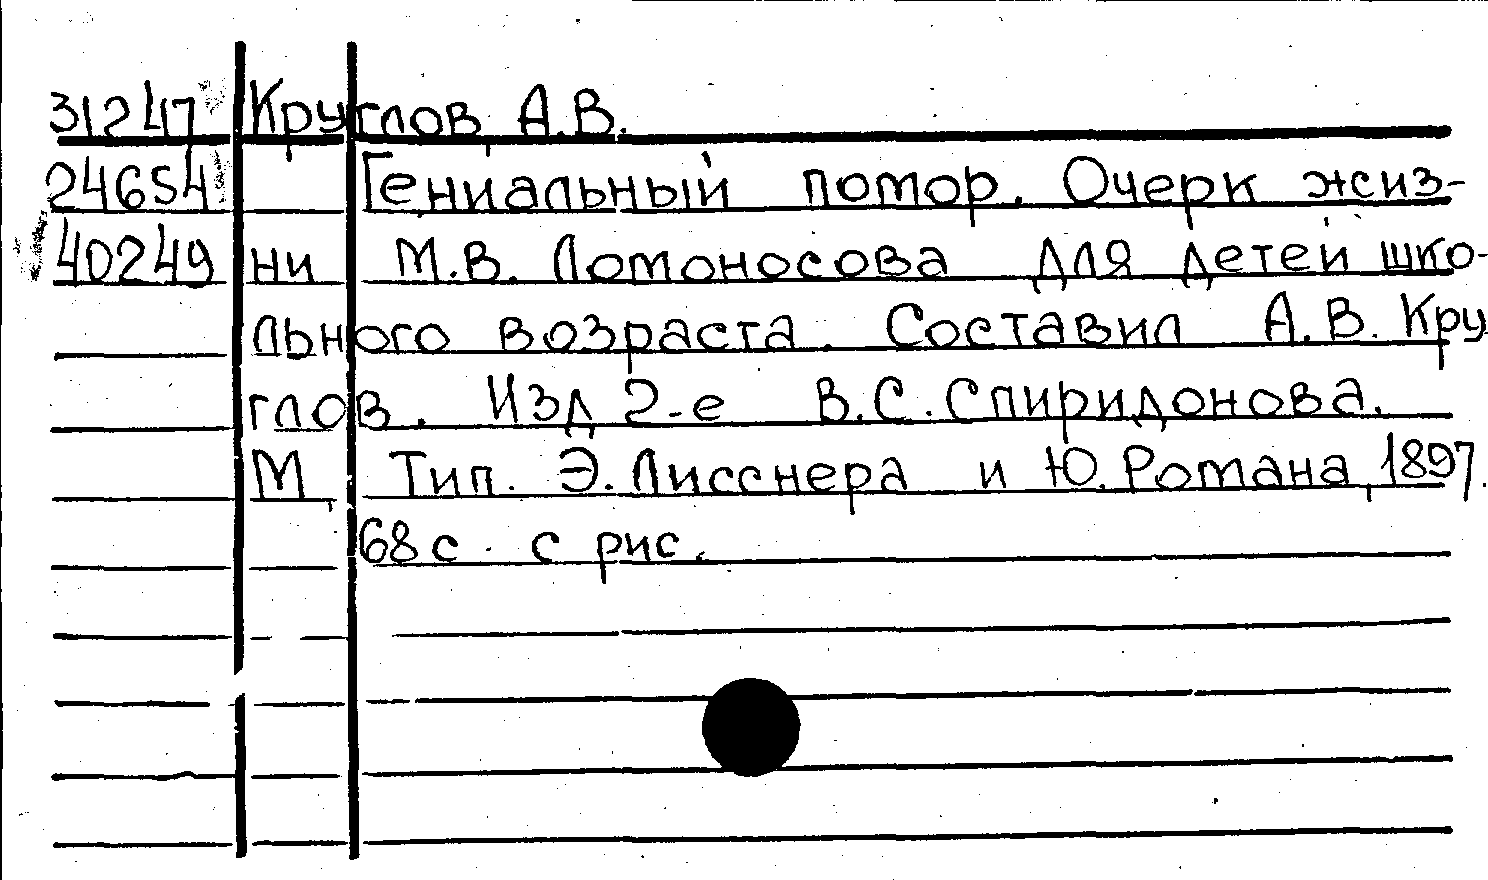 31247 Круглов А.В.
24654 Гениальный помор. Очерк жиз-
40249 ни М.В. Ломоносова для детей шко-
льного возраста. Составил А.В. Кру
глов. Изд 2-е В.С. Спиридонова.
М, Тип. Э. Лисснера и Ю. Романа, 1897.
68 с. с рис.